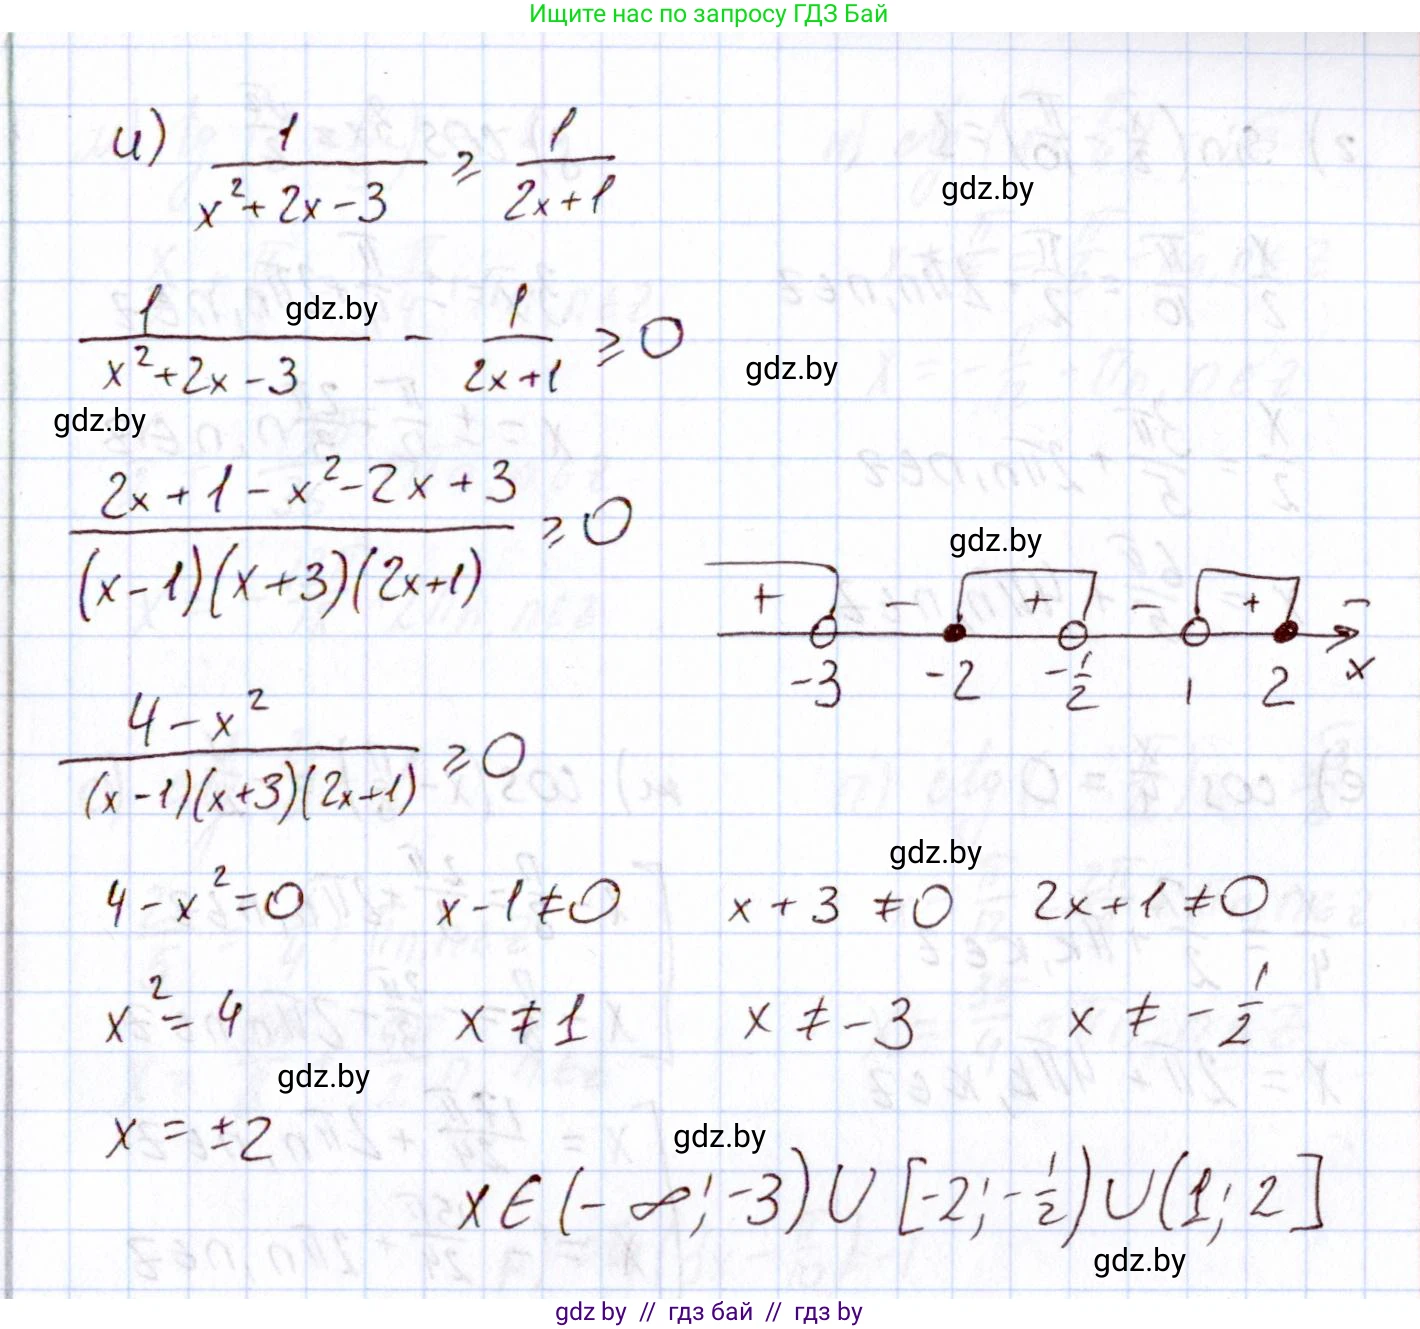 Ищите нас по запросу ГДЗ Бай
и) 1/(x²+2x-3) ≥ 1/(2x+1)
gdz.by
1/(x²+2x-3) - 1/(2x+1) ≥ 0
gdz.by
gdz.by
gdz.by
(2x+1-x²-2x+3)/((x-1)(x+3)(2x+1)) ≥ 0
gdz.by
+ - + - + -
-3 -2 -1/2 1 2 x
(4-x²)/((x-1)(x+3)(2x+1)) ≥ 0
gdz.by
4-x²=0 x-1≠0 x+3≠0 2x+1≠0
x²=4 x≠1 x≠-3 x≠-1/2
gdz.by
x=±2
gdz.by
x∈(-∞;-3)∪[-2;-1/2)∪(1;2]
gdz.by
gdz by // гдз бай // гдз by